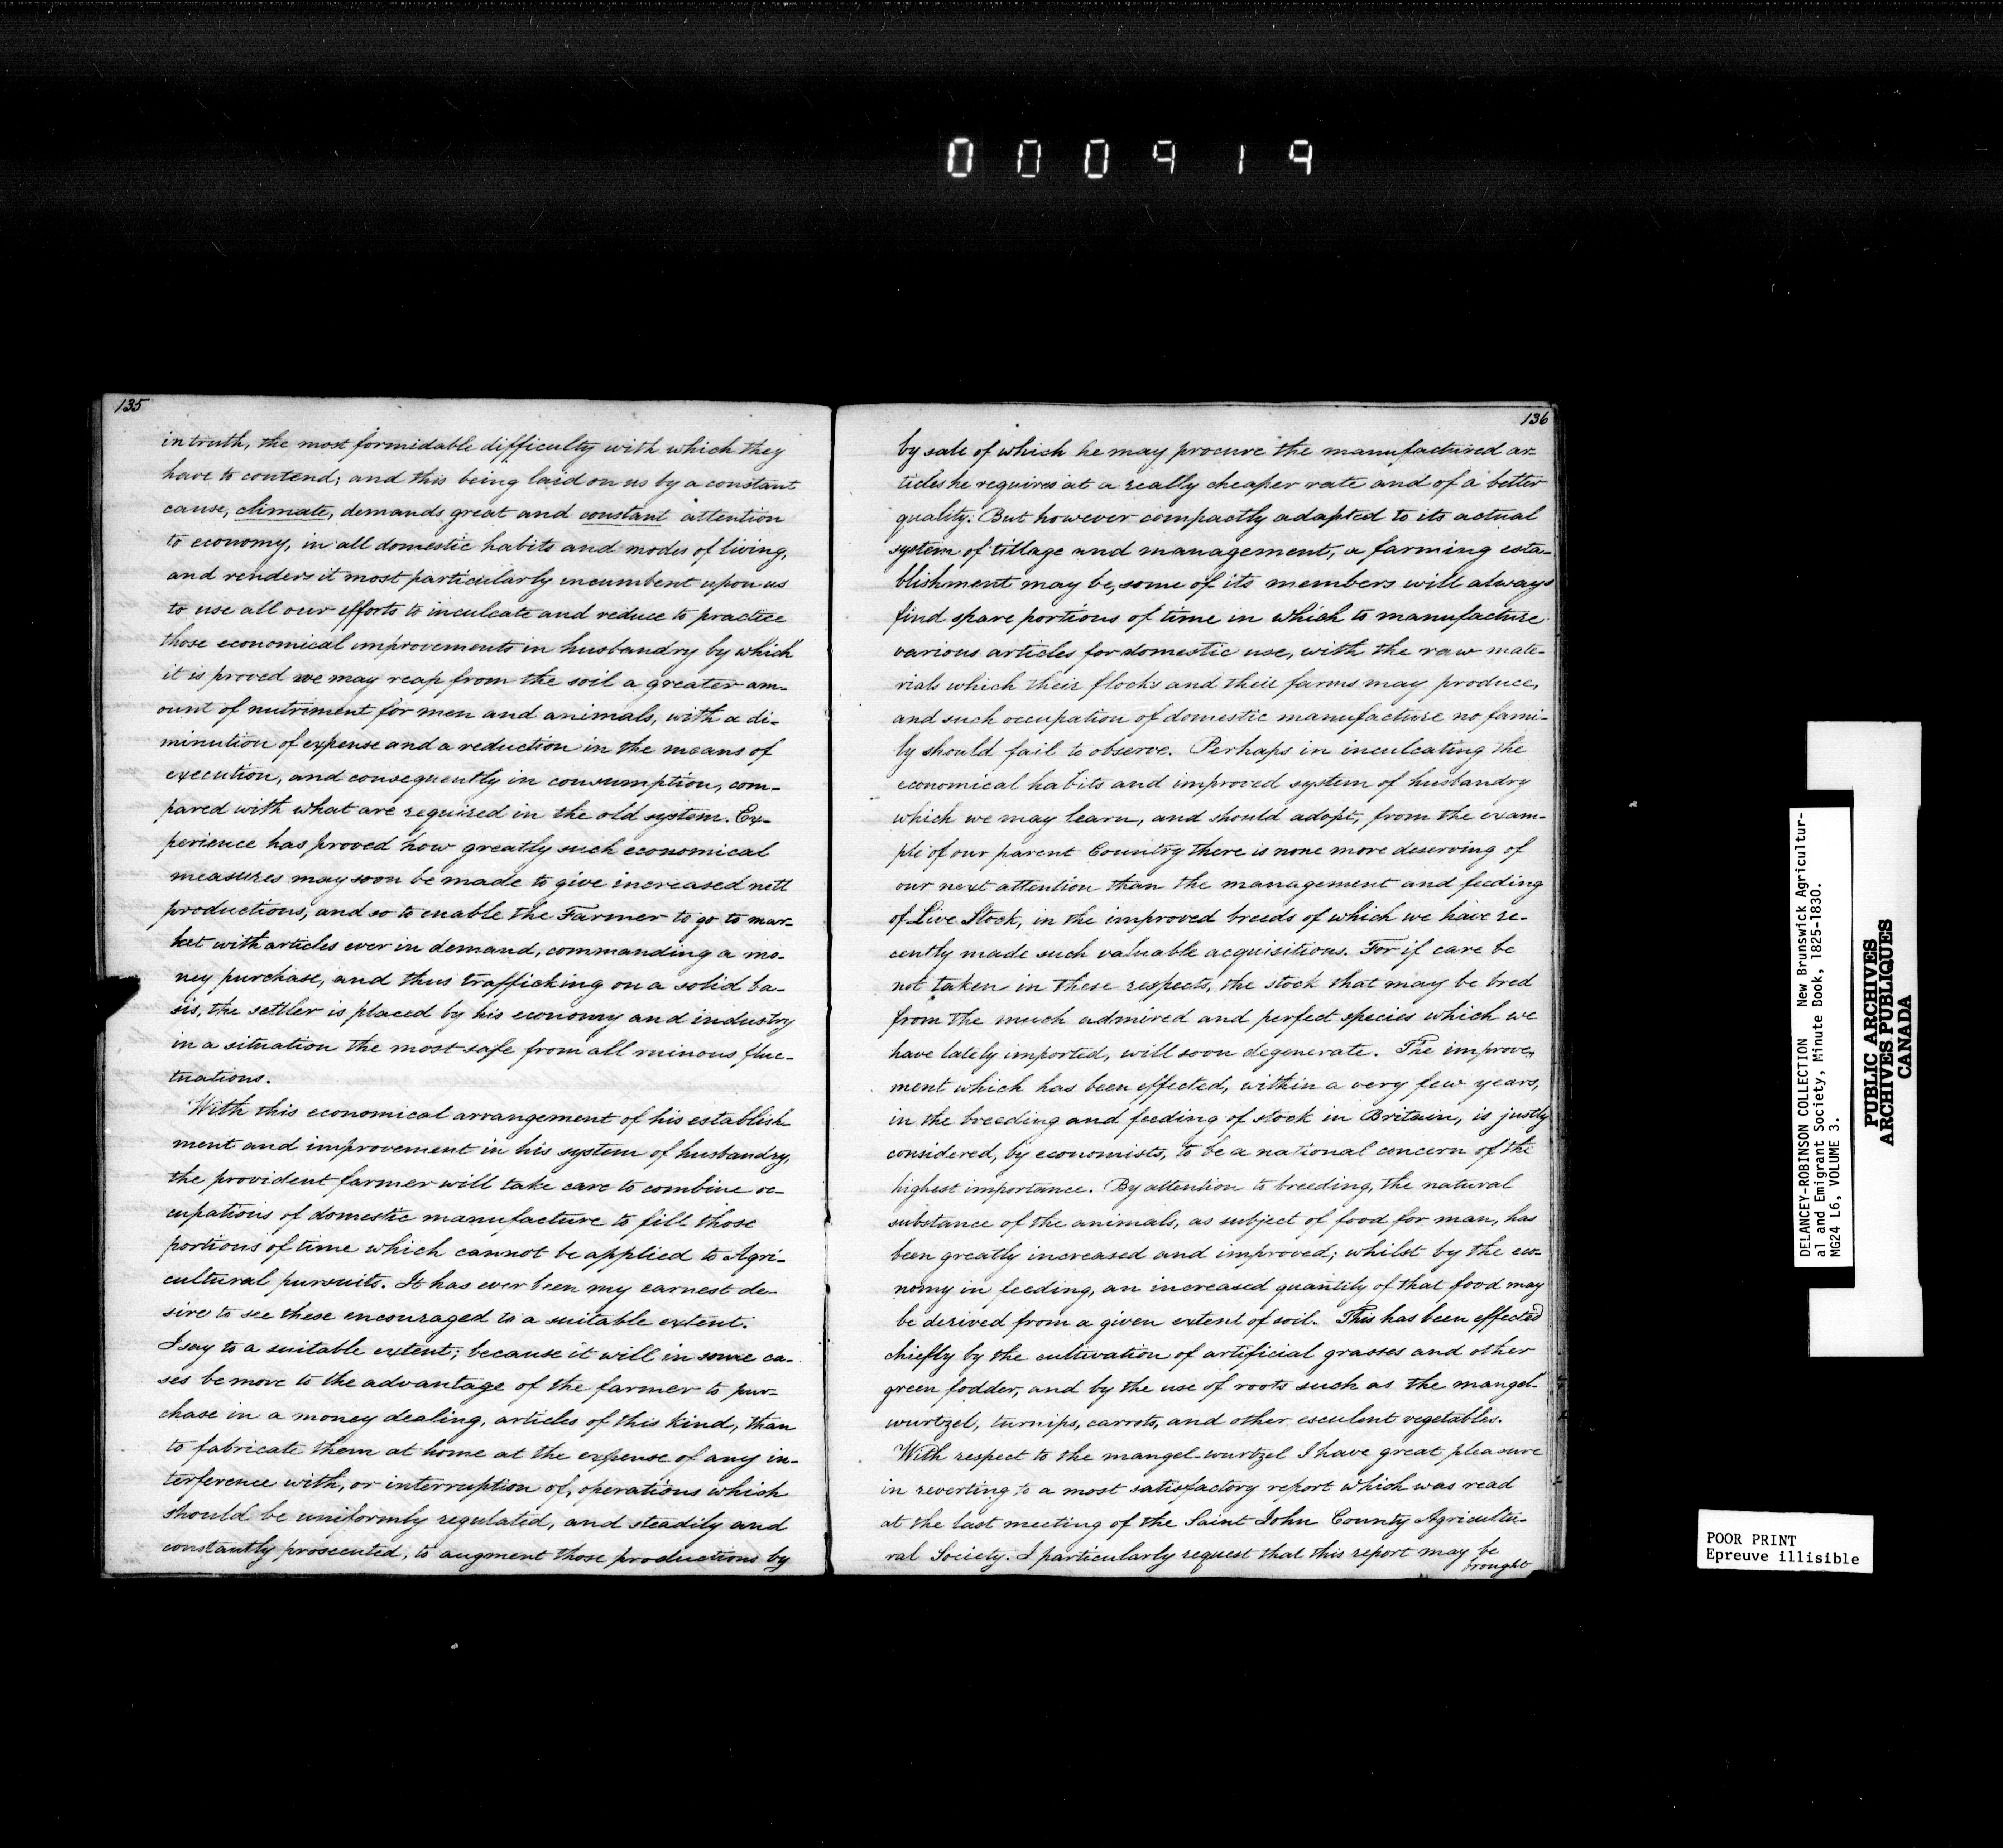 000919
135
in truth, the most formidable difficulty with which they
have to contend; and this being laid on us by a constant
cause, climate, demands great and constant attention
to economy, in all domestic habits and modes of living,
and renders it most particularly incumbent upon us
to use all our efforts to inculcate and reduce to practice
those economical improvements in husbandry by which
it is proved we may reap from the soil a greater am-
ount of nutriment for men and animals, with a di-
minution of expense and a reduction in the means of
execution, and consequently in consumption, com-
pared with what are required in the old system. Ex-
perience has proved how greatly such economical
measures may soon be made to give increased nett
productions, and so to enable the Farmer to go to mar-
ket with articles ever in demand, commanding a mo-
ney purchase, and thus trafficking on a solid ba-
sis, the settler is placed by his economy and industry
in a situation the most safe from all ruinous fluc-
tuations.
With this economical arrangement of his establish-
ment and improvement in his system of husbandry,
the provident farmer will take care to combine oc-
cupations of domestic manufacture to fill those
portions of time which cannot be applied to Agri-
cultural pursuits. It has ever been my earnest de-
sire to see these encouraged to a suitable extent.
I say to a suitable extent; because it will in some ca-
ses be more to the advantage of the farmer to pur-
chase in a money dealing, articles of this kind, than
to fabricate them at home at the expense of any in-
terference with, or interruption of, operations which
should be uniformly regulated, and steadily and
constantly prosecuted, to augment those productions by
136
by sale of which he may procure the manufactured ar-
ticles he requires at a really cheaper rate and of a better
quality. But however compactly adapted to its actual
system of tillage and management, a farming esta-
blishment may be, some of its members will always
find spare portions of time in which to manufacture
various articles for domestic use, with the raw mate-
rials which their flocks and their farms may produce,
and such occupation of domestic manufacture no fami-
ly should fail to observe. Perhaps in inculcating the
economical habits and improved system of husbandry
which we may learn, and should adopt, from the exam-
ple of our parent Country there is none more deserving of
our next attention than the management and feeding
of Live Stock, in the improved breeds of which we have re-
cently made such valuable acquisitions. For if care be
not taken in these respects, the stock that may be bred
from the much admired and perfect species which we
have lately imported, will soon degenerate. The improve-
ment which has been effected, within a very few years,
in the breeding and feeding of stock in Britain, is justly
considered, by economists, to be a national concern of the
highest importance. By attention to breeding, the natural
substance of the animals, as subject of food for man, has
been greatly increased and improved; whilst by the eco-
nomy in feeding, an increased quantity of that food may
be derived from a given extent of soil. This has been effected
chiefly by the cultivation of artificial grasses and other
green fodder, and by the use of roots such as the mangel-
wurtzel, turnips, carrots, and other esculent vegetables.
With respect to the mangel-wurtzel I have great pleasure
in reverting to a most satisfactory report which was read
at the last meeting of the Saint John County Agricultu-
ral Society. I particularly request that this report may be
brought
DELANCEY-ROBINSON COLLECTION New Brunswick Agricultur-
al and Emigrant Society, Minute Book, 1825-1830.
MG24 L6, VOLUME 3.
PUBLIC ARCHIVES
ARCHIVES PUBLIQUES
CANADA
POOR PRINT
Epreuve illisible